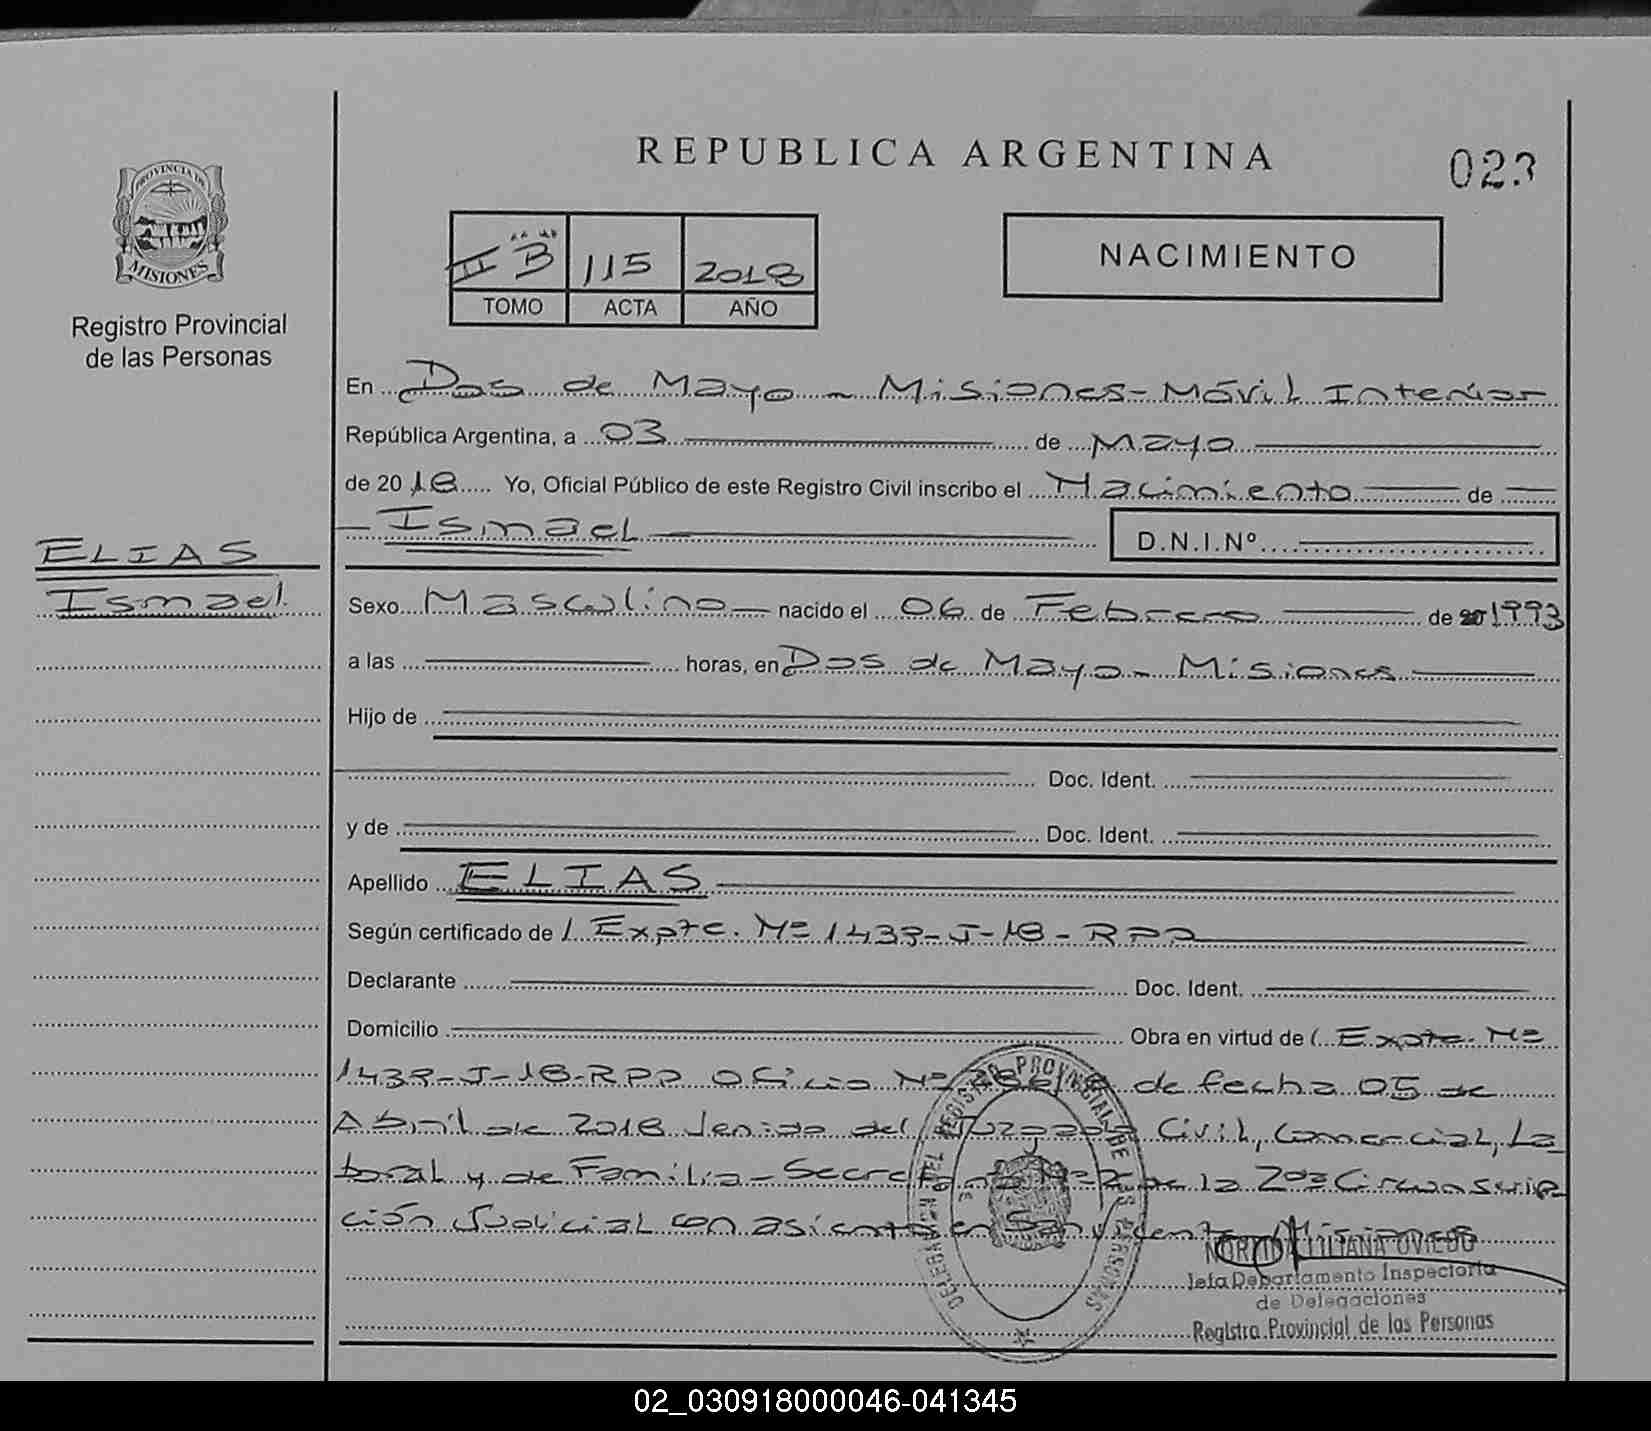 REPUBLICA ARGENTINA
023
PROVINCIA DE
MISIONES
Registro Provincial
de las Personas
II "B" 115 2018
TOMO ACTA AÑO
NACIMIENTO
En Dos de Mayo - Misiones - Móvil Interior
República Argentina, a 03 de Mayo
de 2018 Yo, Oficial Público de este Registro Civil inscribo el Nacimiento de
Ismael
D.N.I.Nº
ELIAS
Ismael
Sexo Masculino nacido el 06 de Febrero de 1993
a las horas, en Dos de Mayo - Misiones
Hijo de
Doc. Ident.
y de Doc. Ident.
Apellido ELIAS
Según certificado de / Expte. Nº 1439-J-18-RPP
Declarante Doc. Ident.
Domicilio Obra en virtud de ( Expte. Nº
1439-J-18-RPP Oficio Nº de fecha 05 de
Abril de 2018 venido del Juzgado Civil, Comercial, La
boral y de Familia - Secretaría Nº2 de la 2da Circunscrip
ción Judicial con asiento en San Vicente Misiones
REGISTRO PROVINCIAL DE LAS PERSONAS
NORMA LILIANA OVIEDO
Jefa Departamento Inspectoría
de Delegaciones
Registro Provincial de las Personas
02_030918000046-041345